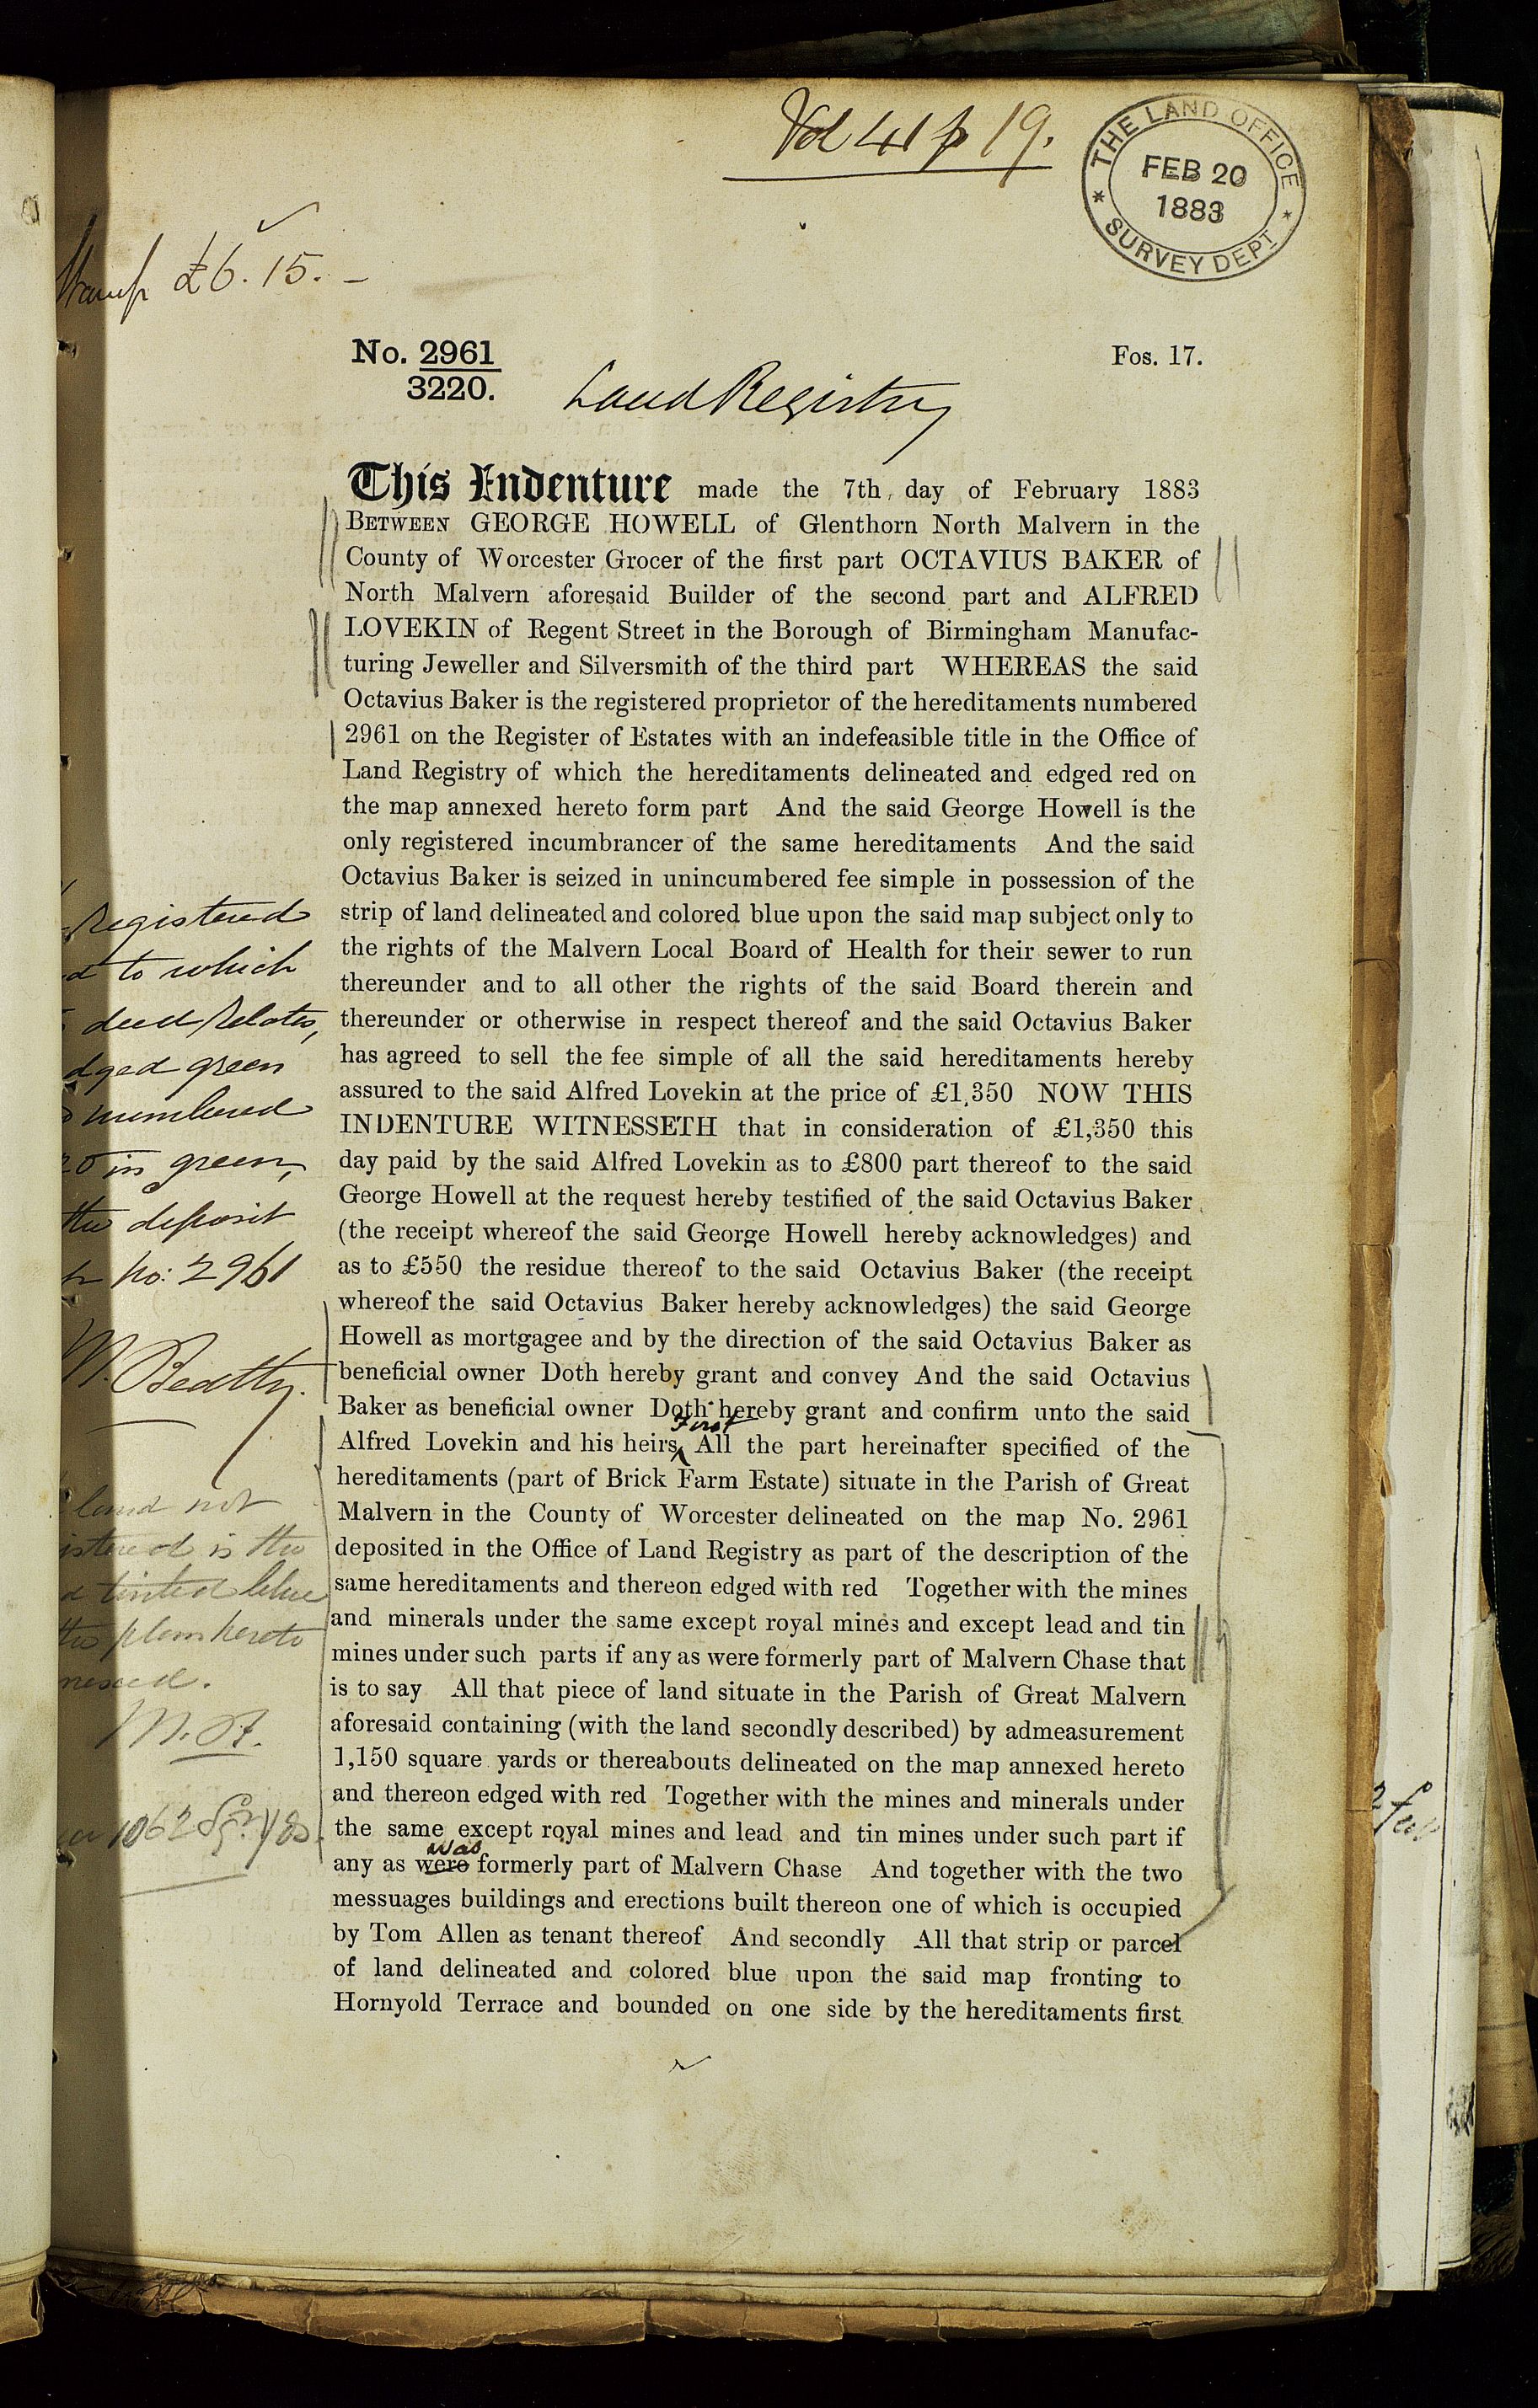 Vol 41 p 19.
THE LAND OFFICE
FEB 20
1883
* SURVEY DEPT *
Stamp £6.15.-
No. 2961
3220.
Fos. 17.
Land Registry
This Indenture made the 7th day of February 1883
BETWEEN GEORGE HOWELL of Glenthorn North Malvern in the
County of Worcester Grocer of the first part OCTAVIUS BAKER of
North Malvern aforesaid Builder of the second part and ALFRED
LOVEKIN of Regent Street in the Borough of Birmingham Manufac-
turing Jeweller and Silversmith of the third part WHEREAS the said
Octavius Baker is the registered proprietor of the hereditaments numbered
2961 on the Register of Estates with an indefeasible title in the Office of
Land Registry of which the hereditaments delineated and edged red on
the map annexed hereto form part And the said George Howell is the
only registered incumbrancer of the same hereditaments And the said
Octavius Baker is seized in unincumbered fee simple in possession of the
strip of land delineated and colored blue upon the said map subject only to
the rights of the Malvern Local Board of Health for their sewer to run
thereunder and to all other the rights of the said Board therein and
thereunder or otherwise in respect thereof and the said Octavius Baker
has agreed to sell the fee simple of all the said hereditaments hereby
assured to the said Alfred Lovekin at the price of £1,350 NOW THIS
INDENTURE WITNESSETH that in consideration of £1,350 this
day paid by the said Alfred Lovekin as to £800 part thereof to the said
George Howell at the request hereby testified of the said Octavius Baker
(the receipt whereof the said George Howell hereby acknowledges) and
as to £550 the residue thereof to the said Octavius Baker (the receipt
whereof the said Octavius Baker hereby acknowledges) the said George
Howell as mortgagee and by the direction of the said Octavius Baker as
beneficial owner Doth hereby grant and convey And the said Octavius
Baker as beneficial owner Doth hereby grant and confirm unto the said
First
Alfred Lovekin and his heirs All the part hereinafter specified of the
hereditaments (part of Brick Farm Estate) situate in the Parish of Great
Malvern in the County of Worcester delineated on the map No. 2961
deposited in the Office of Land Registry as part of the description of the
same hereditaments and thereon edged with red Together with the mines
and minerals under the same except royal mines and except lead and tin
mines under such parts if any as were formerly part of Malvern Chase that
is to say All that piece of land situate in the Parish of Great Malvern
aforesaid containing (with the land secondly described) by admeasurement
1,150 square yards or thereabouts delineated on the map annexed hereto
and thereon edged with red Together with the mines and minerals under
the same except royal mines and lead and tin mines under such part if
was
any as were formerly part of Malvern Chase And together with the two
messuages buildings and erections built thereon one of which is occupied
by Tom Allen as tenant thereof And secondly All that strip or parcel
of land delineated and colored blue upon the said map fronting to
Hornyold Terrace and bounded on one side by the hereditaments first
registered
d to which
deed relates,
dged green
numbered
20 in green,
the deposit
No: 2961
M. Beatty.
land not
istered is the
d tinted blue
the plan hereto
nexed.
1062 Sq. Yds.